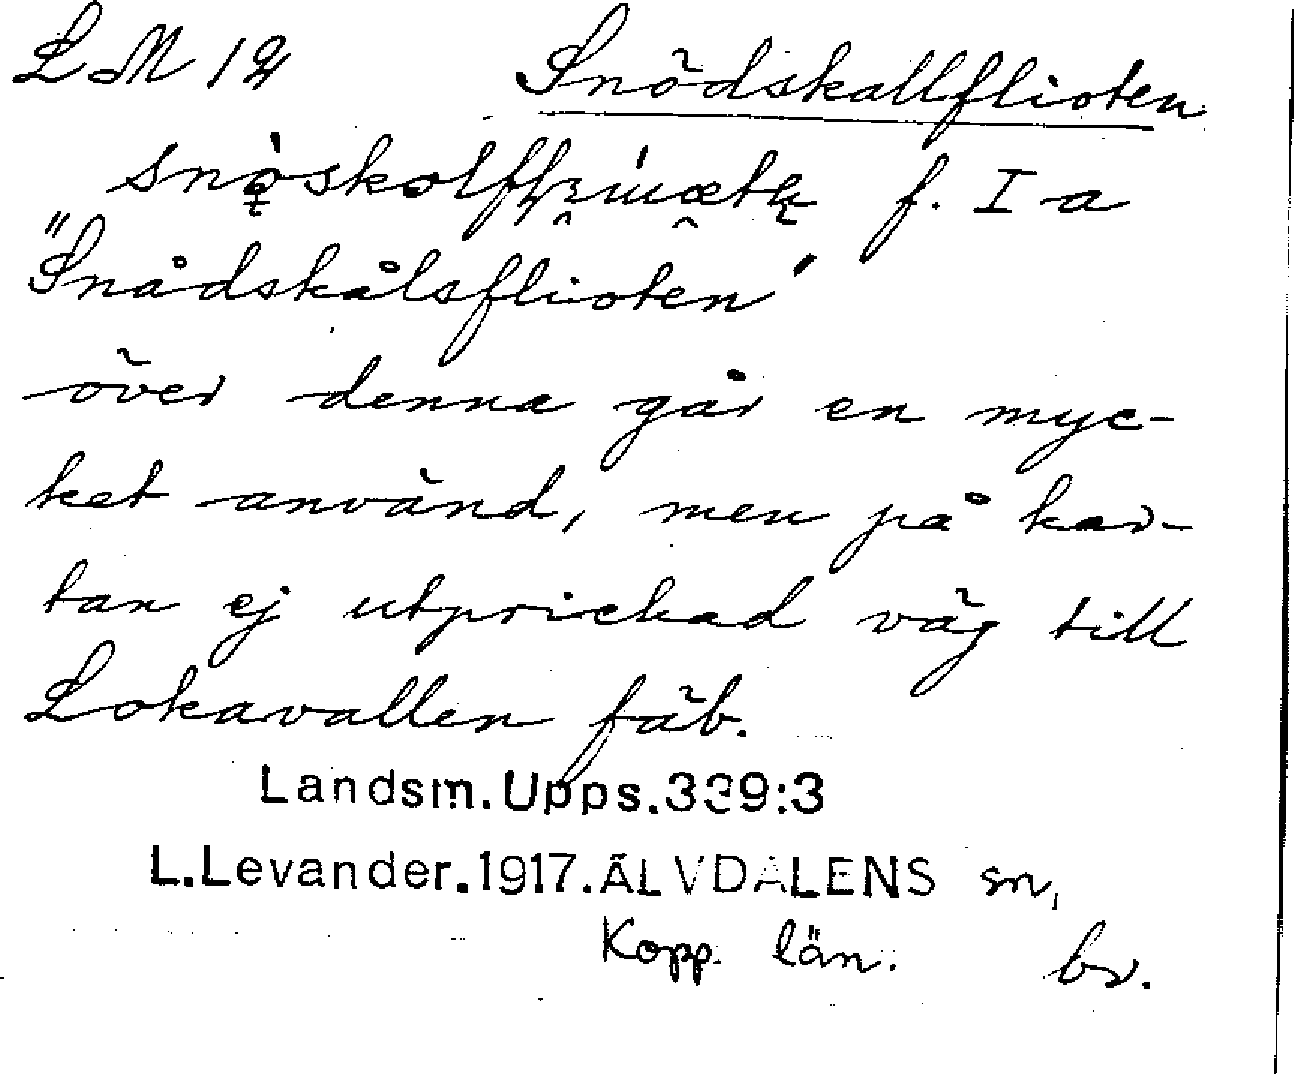 LM 12 Snödskallflioten
f. I a
"Snådskålsflioten"
över denna går en myc-
ket använd, men på kar-
tan ej utprickad väg till
Lokavallen fäb.
Landsm. Upps. 339:3
L. Levander. 1917. ÄLVDALENS sn,
Kopp. län. bv.